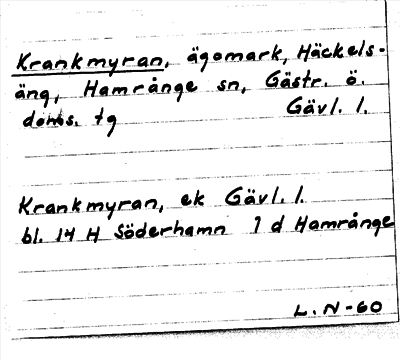 Krankmyran, ägomark, Häckels-
äng, Hamrånge sn, Gästr. ö.
doms. tg Gävl. l.
Krankmyran, ek Gävl. l.
bl. 14 H Söderhamn 1 d Hamrånge
L. N-60